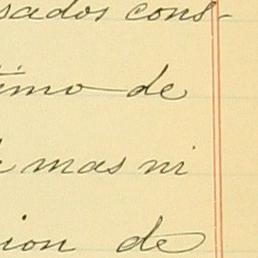 sados cons-
timo de
mas ni
ion de